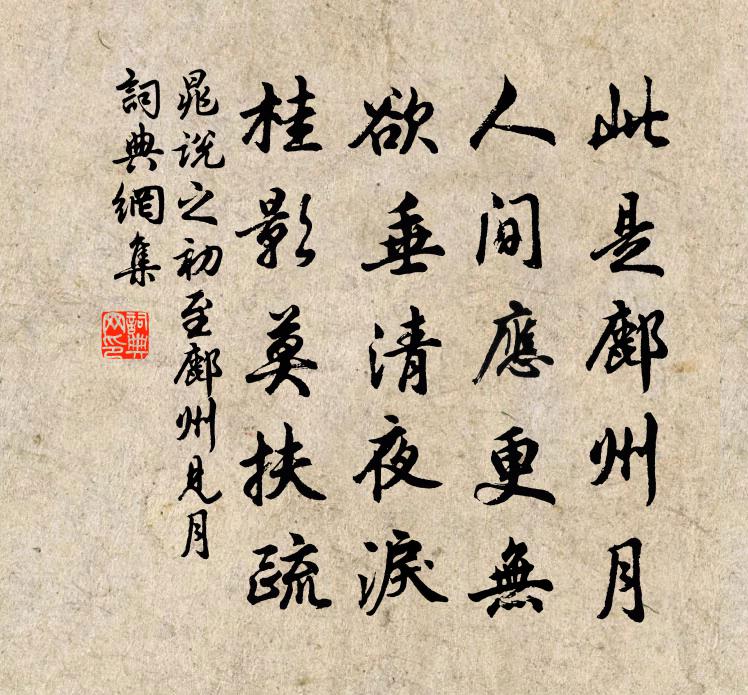 此是鄜州月
人間應更無
欲垂清夜淚
桂影莫扶疏
晁説之初至鄜州見月
詞典網集
詞典
网印